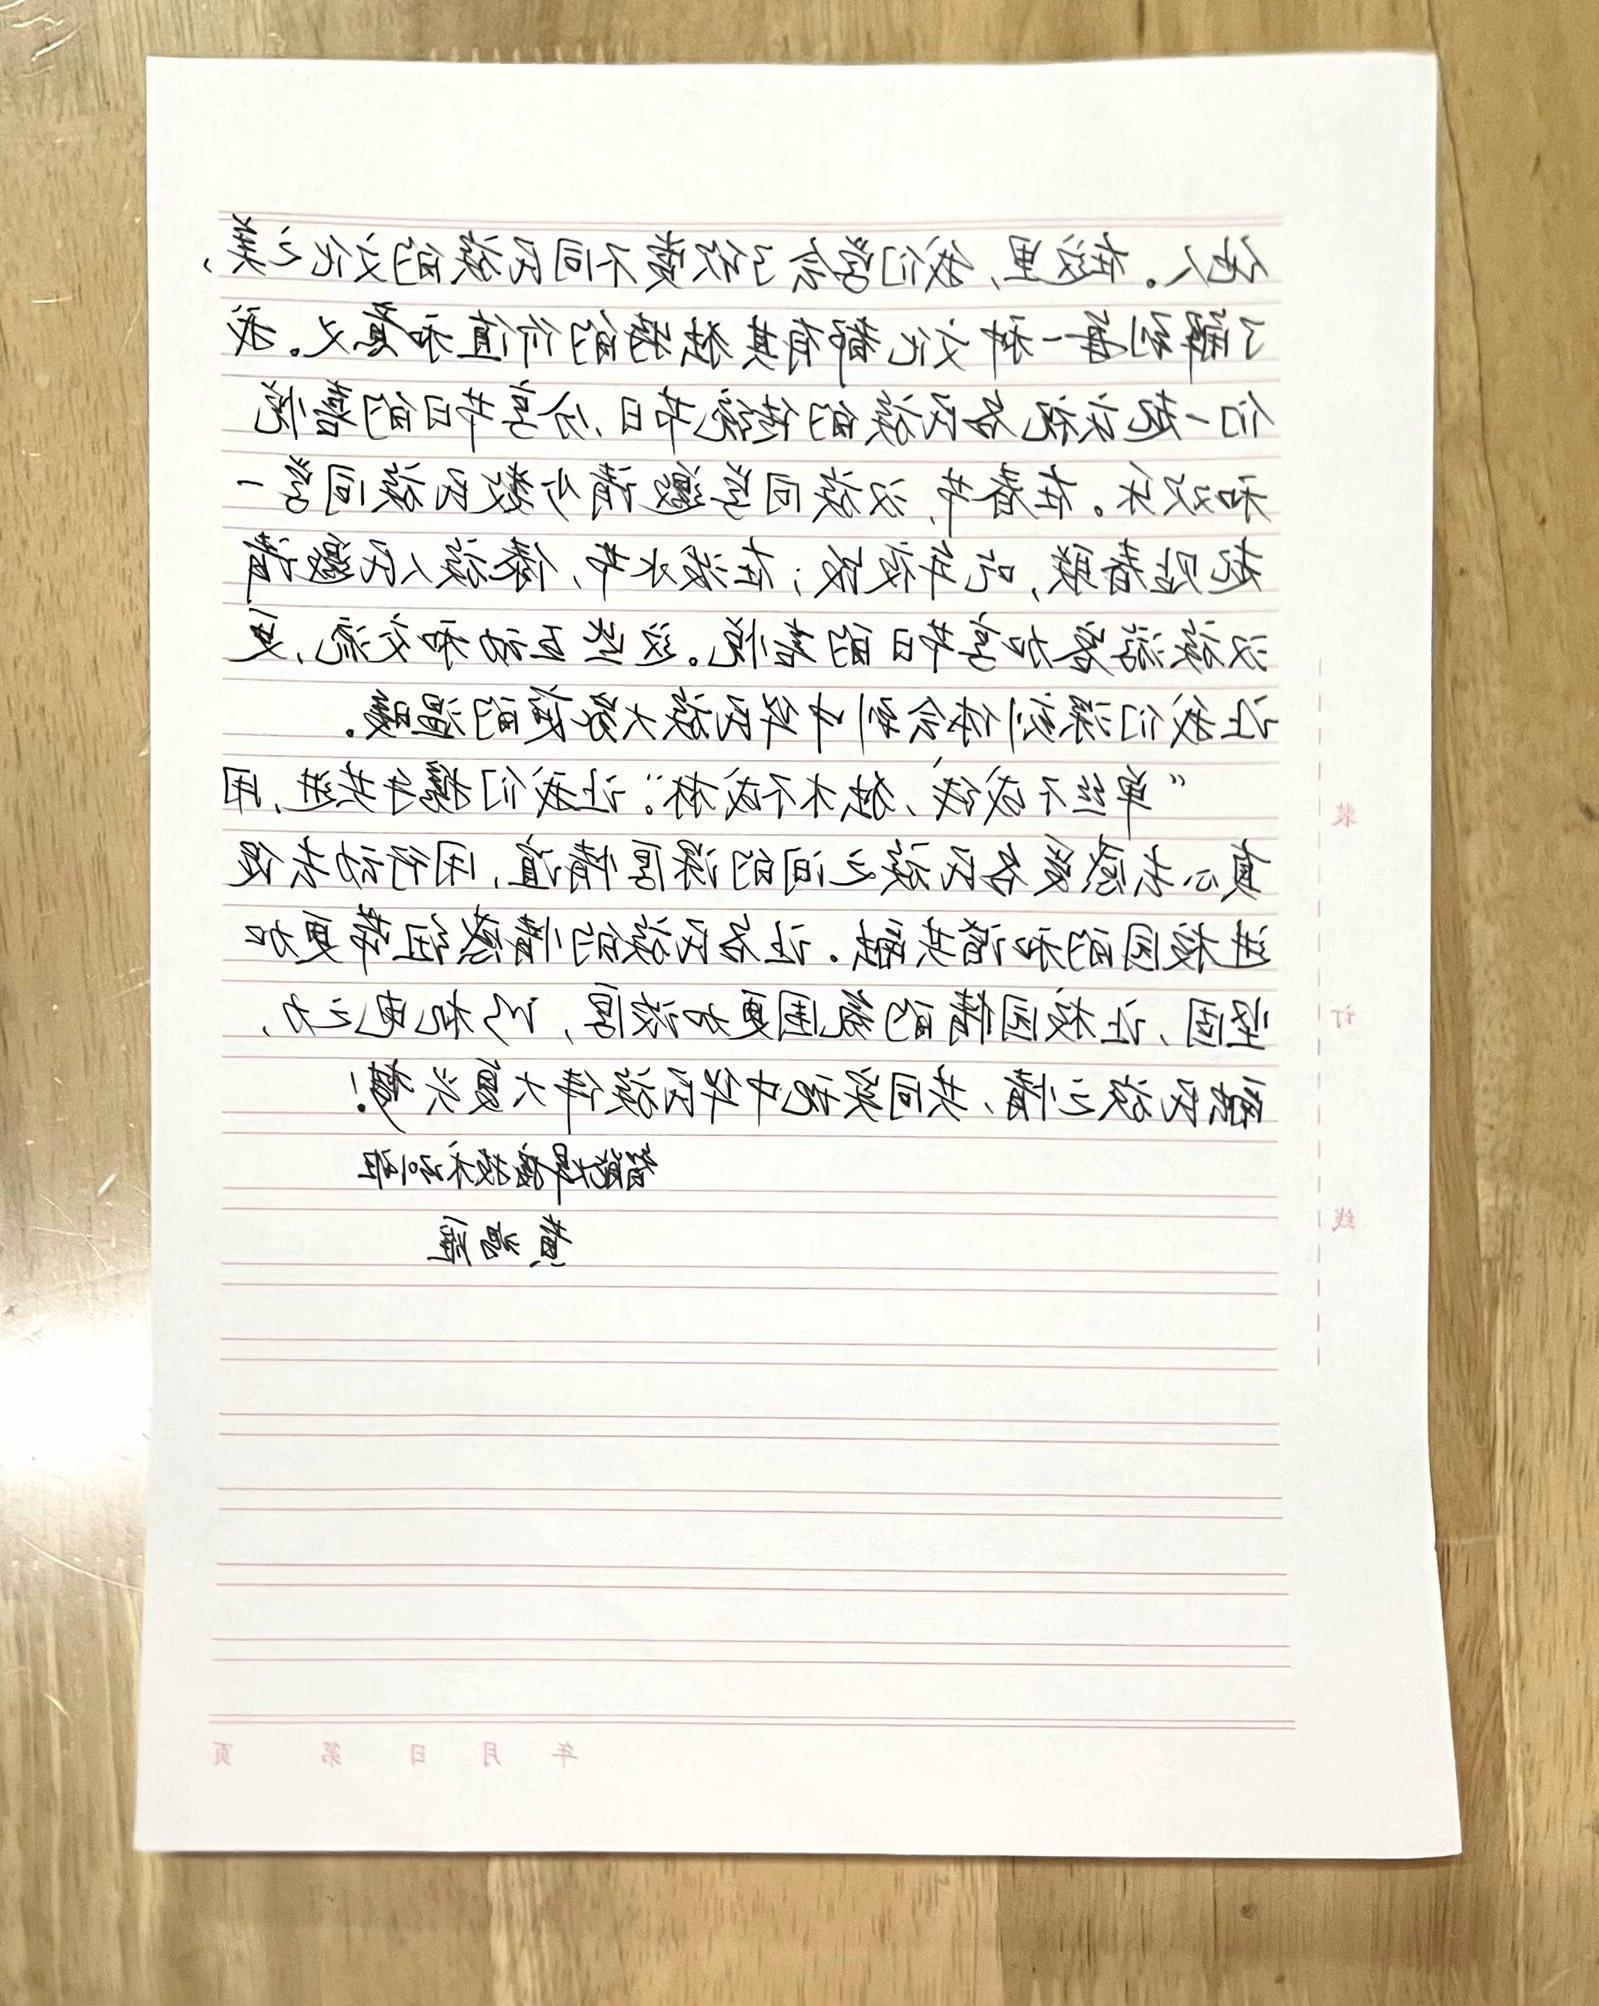 他人。在这里，我们学会了欣赏不同民族的文化之美，
了解到每一种文化都有其独特的价值和意义。我
们一起庆祝各民族的传统节日，分享节日的喜悦
和欢乐。在春节，汉族同学邀请少数民族同学一
起贴春联，吃年夜饭；在泼水节，傣族人民邀请
汉族游客加享节日的喜悦。这些互动和交流，更
让我们深刻体会到中华民族大家庭的温暖。
“单丝不成线，独木不成林”。让我们携手共进，用
真心去感受各民族之间的深厚情谊，用行动去促
进校园的和谐共融。让各民族的情感纽带更加
坚固，让校园情的氛围更加浓厚，以机电之力，
融民族之情，共同实现中华民族伟大复兴梦！
智能焊接技术班
黄
装
订
线
年 月 日 第 页